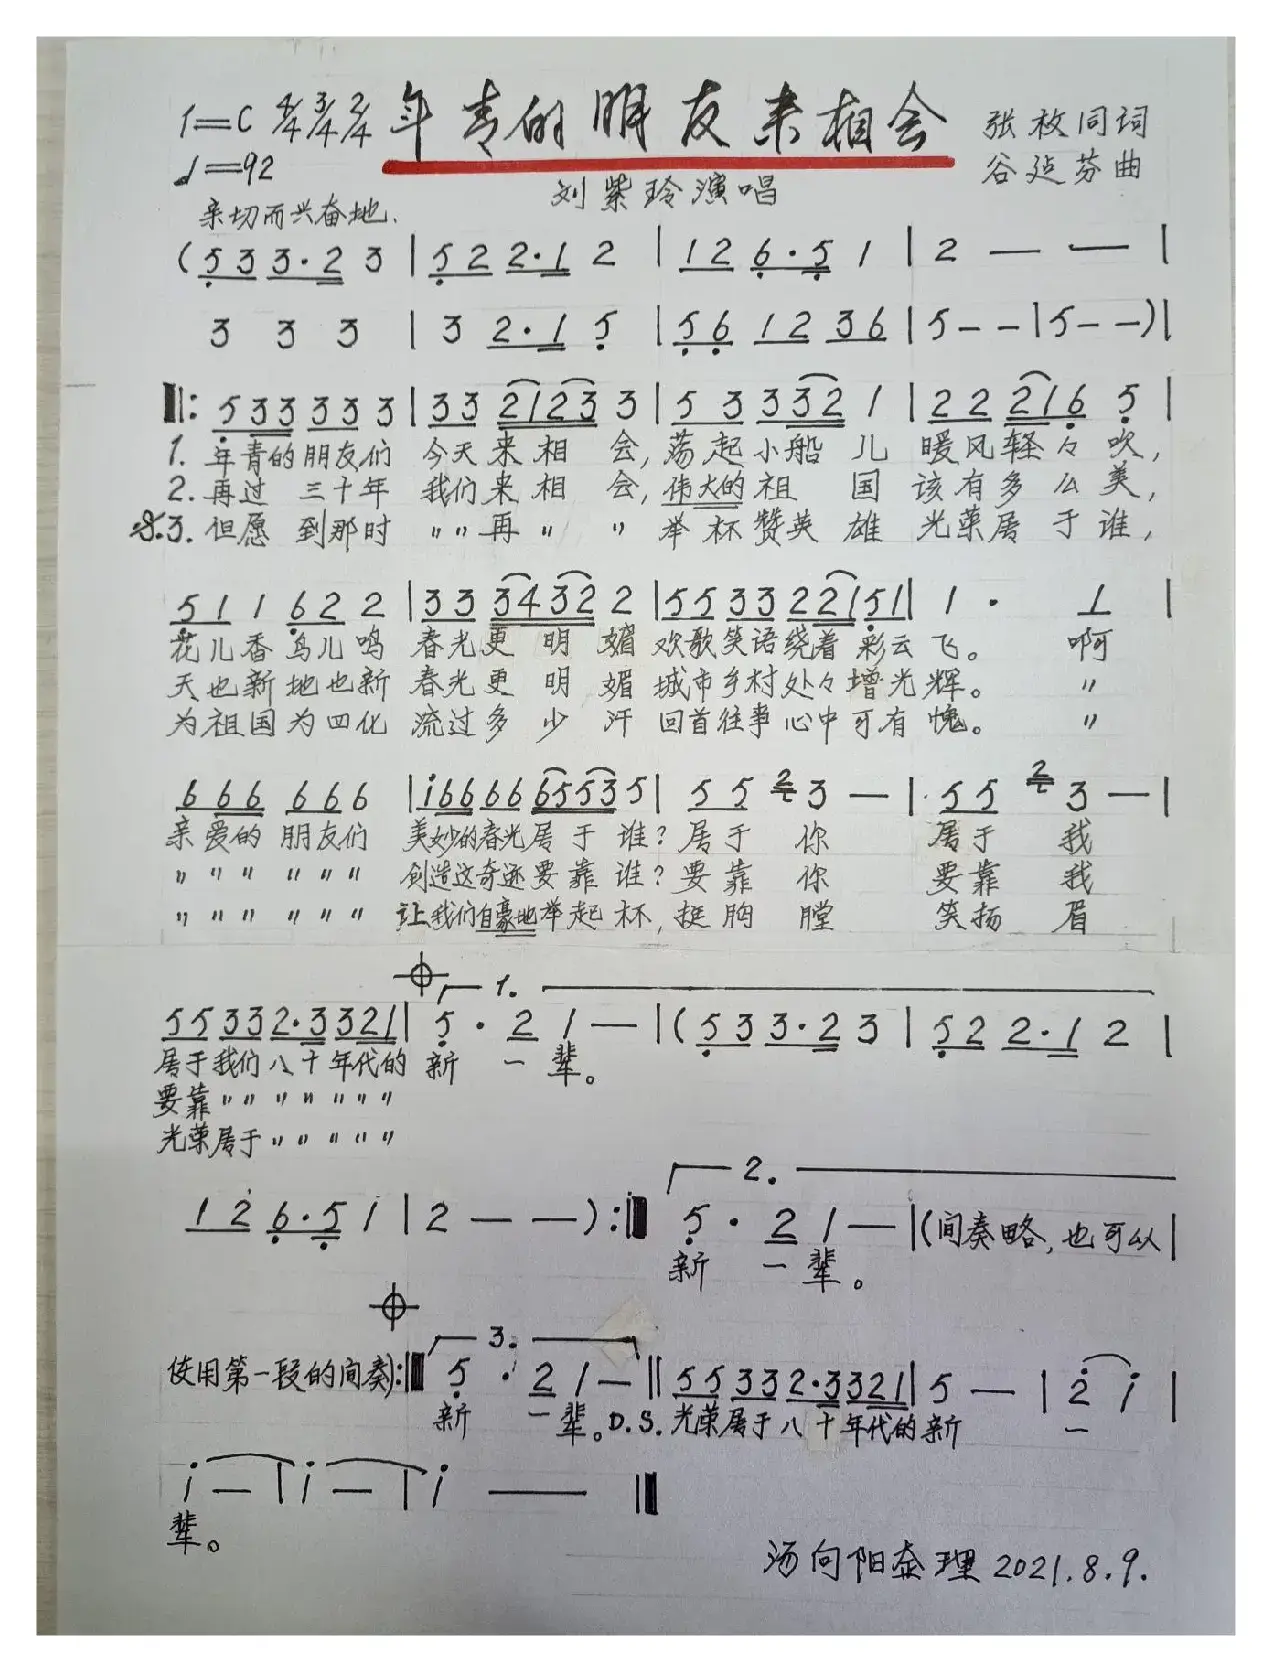 1=C 4/4 3/4 2/4 年青的朋友来相会 张枚同词
♩=92 谷廷芬曲
刘紫玲演唱
亲切而兴奋地.
(5 3 3 3·2 3 | 5 2 2·1 2 | 1 2 6·5 1 | 2 — — |
3 3 3 | 3 2·1 5 | 5 6 1 2 3 6 | 5 - - | 5 - - ) |
‖: 5 3 3 3 3 3 | 3 3 2 1 2 3 3 | 5 3 3 3 2 1 | 2 2 2 1 6 5 |
1. 年青的朋友们 今天来相会, 荡起小船儿 暖风轻々吹,
2. 再过三十年 我们来相会, 伟大的祖国 该有多么美,
𝄋.3. 但愿到那时 〃〃再〃〃 举杯赞英雄 光荣属于谁,
5 1 1 6 2 2 | 3 3 3 4 3 2 2 | 5 5 3 3 2 2 1 5 1 | 1 · 1 |
花儿香鸟儿鸣 春光更明媚 欢歌笑语绕着彩云飞。 啊
天也新地也新 春光更明媚 城市乡村处々增光辉。 〃
为祖国为四化 流过多少汗 回首往事心中可有愧。 〃
6 6 6 6 6 6 | i 6 6 6 6 6 5 5 3 5 | 5 5 2 3 — | 5 5 2 3 — |
亲爱的朋友们 美妙的春光属于谁? 属于你 属于我
〃〃〃〃〃〃 创造这奇迹要靠谁? 要靠你 要靠我
〃〃〃〃〃〃 让我们自豪地举起杯, 挺胸膛 笑扬眉
1.
5 5 3 3 2·3 3 2 1 | 5 · 2 1 — | (5 3 3 3·2 3 | 5 2 2·1 2 |
属于我们八十年代的新一辈。
要靠〃〃〃〃〃〃〃
光荣属于〃〃〃〃〃
2.
1 2 6·5 1 | 2 — — ) :‖ 5 · 2 1 — | (间奏略, 也可以 |
新一辈。
3.
使用第一段的间奏) :‖ 5 · 2 1 — ‖ 5 5 3 3 2·3 3 2 1 | 5 — | 2 i |
新一辈。D.S. 光荣属于八十年代的新 一
i — | i — | i — ‖
辈。
汤向阳查理 2021.8.9.